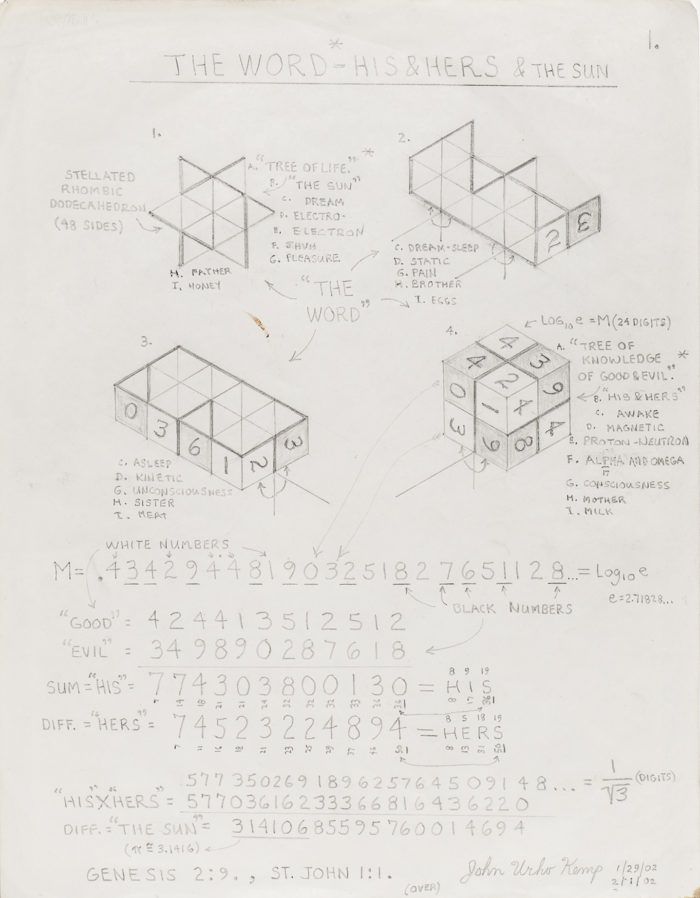 1.
THE WORD = HIS & HERS & THE SUN
*
1.
STELLATED
RHOMBIC
DODECAHEDRON
(48 SIDES)
A. "TREE OF LIFE." *
B. "THE SUN"
C. DREAM
D. ELECTRO-
E. ELECTRON
F. JHVH
G. PLEASURE
H. FATHER
I. HONEY
2.
2 3
C. DREAM-SLEEP
D. STATIC
G. PAIN
H. BROTHER
I. EGGS
"THE
WORD"
3.
0 3 6 1 2 3
C. ASLEEP
D. KINETIC
G. UNCONSCIOUSNESS
H. SISTER
I. MEAT
4.
LOG10 e = M (24 DIGITS)
4 4 3
2
0 1 4 9
3 9 8 4
A. "TREE OF
KNOWLEDGE
OF GOOD & EVIL." *
B. "HIS & HERS"
C. AWAKE
D. MAGNETIC
E. PROTON-NEUTRON
F. ALPHA AND OMEGA
G. CONSCIOUSNESS
H. MOTHER
I. MILK
WHITE NUMBERS
M = .434294481903251827651128... = LOG10 e
e = 2.71828...
BLACK NUMBERS
"GOOD" = 424413512512
"EVIL" = 349890287618
SUM = "HIS" = 774303800130 = HIS
8 9 19
DIFF. = "HERS" = 74523224894 = HERS
8 5 18 19
.577350269189625764509148... = 1/√3 (DIGITS)
"HIS" X "HERS" = 57703616233366816436220
DIFF. = "THE SUN" = 314106855957600014694
(π ≅ 3.1416)
GENESIS 2:9. , ST. JOHN 1:1.
(OVER)
John Urho Kemp 1/29/02
2/11/02